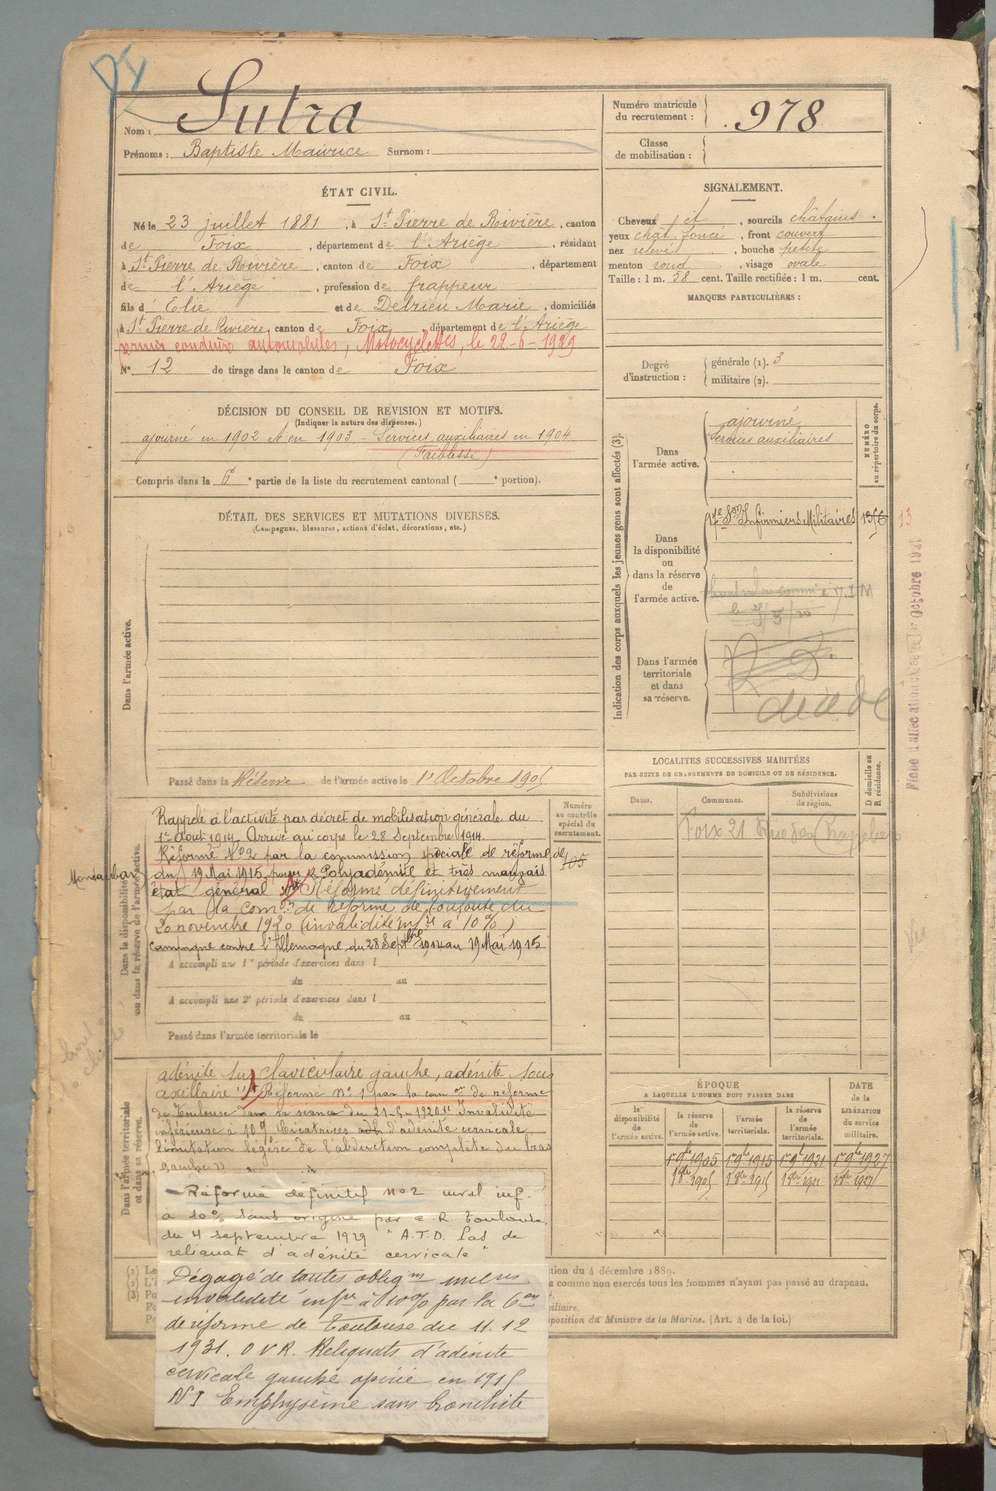 Sutra
Nom :
Prénoms : Baptiste Maurice Surnom :
Numéro matricule
du recrutement : 978
Classe
de mobilisation :
ÉTAT CIVIL.
Né le 23 juillet 1881, à St Pierre de Rivière, canton
de Foix, département de l'Ariège, résidant
à St Pierre de Rivière, canton de Foix, département
de l'Ariège, profession de frappeur
fils d' Elie et de Delrieu Marie, domiciliés
à St Pierre de Rivière, canton de Foix, département de l'Ariège
permis conduire automobiles, Motocyclettes, le 22-6-1929
N° 12 de tirage dans le canton de Foix
SIGNALEMENT.
Cheveux et, sourcils châtains.
yeux chât. foncé, front couvert
nez relevé, bouche petite
menton rond, visage ovale
Taille : 1 m. 58 cent. Taille rectifiée : 1 m. cent.
MARQUES PARTICULIÈRES :
Degré
d'instruction :
générale (1). 3
militaire (2).
DÉCISION DU CONSEIL DE REVISION ET MOTIFS.
(Indiquer la nature des dispenses.)
ajourné en 1902 et en 1903 - Services auxiliaires en 1904
(Faiblesse)
Compris dans la 6e partie de la liste du recrutement cantonal ( portion).
DÉTAIL DES SERVICES ET MUTATIONS DIVERSES.
(Campagnes, blessures, actions d'éclat, décorations, etc.)
Dans l'armée active.
Passé dans la Réserve de l'armée active le 1er Octobre 1905
Indication des corps auxquels les jeunes gens sont affectés (3).
NUMÉRO
au répertoire du corps.
Dans
l'armée active.
ajourné
Services auxiliaires
Dans
la disponibilité
ou
dans la réserve
de
l'armée active.
Son Infirmiers Militaires 1356
13
Dans l'armée
territoriale
et dans
sa réserve.
Octobre 1921
LOCALITÉS SUCCESSIVES HABITÉES
PAR SUITE DE CHANGEMENTS DE DOMICILE OU DE RÉSIDENCE.
Dates.
Communes.
Subdivisions
de région.
D domicile ou
R résidence.
Foix 21 Rue des Chapeliers
Dans la disponibilité
ou dans la réserve de l'armée active.
Numéro
au contrôle
spécial du
recrutement.
105
Rappelé à l'activité par décret de mobilisation générale du
1er Août 1914. Arrivé au corps le 28 Septembre 1914.
Réformé N°2 par la commission spéciale de réforme de
Montauban du 19 Mai 1915 pour Polyadénite et très mauvais
état général Réformé définitivement
par la comon de Réforme de Toulouse du
20 novembre 1920 (invalidité infre à 10%)
Campagne contre l'Allemagne du 28 Septbre 1914 au 19 Mai 1915
A accompli une 1re période d'exercices dans l
du au
A accompli une 2e période d'exercices dans l
du au
Passé dans l'armée territoriale le
Dans l'armée territoriale
et dans sa réserve.
adénite sus claviculaire gauche, adénite sous
axillaire Réformé N° 1 par la comon de réforme
de Toulouse dans sa séance du 21-6-1920 Invalidité
inférieure à 10% Cicatrices d'adénite cervicale
limitation légère de l'abduction complète du bras
gauche
Réformé définitif n°2 inval inf.
à 10% sans origine par C.R. Toulouse
du 4 septembre 1929 "A.T.D. Pas de
reliquat d'adénite cervicale"
Dégagé de toutes obligons milres
invalidité infre à 10% par la Con
de réforme de Toulouse du 11.12
1931. O V R. Reliquats d'adénite
cervicale gauche opérée en 1915
N I Emphysème sans bronchite
ÉPOQUE
A LAQUELLE L'HOMME DOIT PASSER DANS
la
disponibilité
de
l'armée active.
la réserve
de
l'armée active.
l'armée
territoriale.
la réserve
de
l'armée
territoriale.
DATE
de la
LIBÉRATION
du service
militaire.
1er 9bre 1905 1er 9bre 1915 1er 9bre 1921 1er 9bre 1927
tion du 4 décembre 1889.
a comme non exercés tous les hommes n'ayant pas passé au drapeau.
position du Ministre de la Marine. (Art. 4 de la loi.)